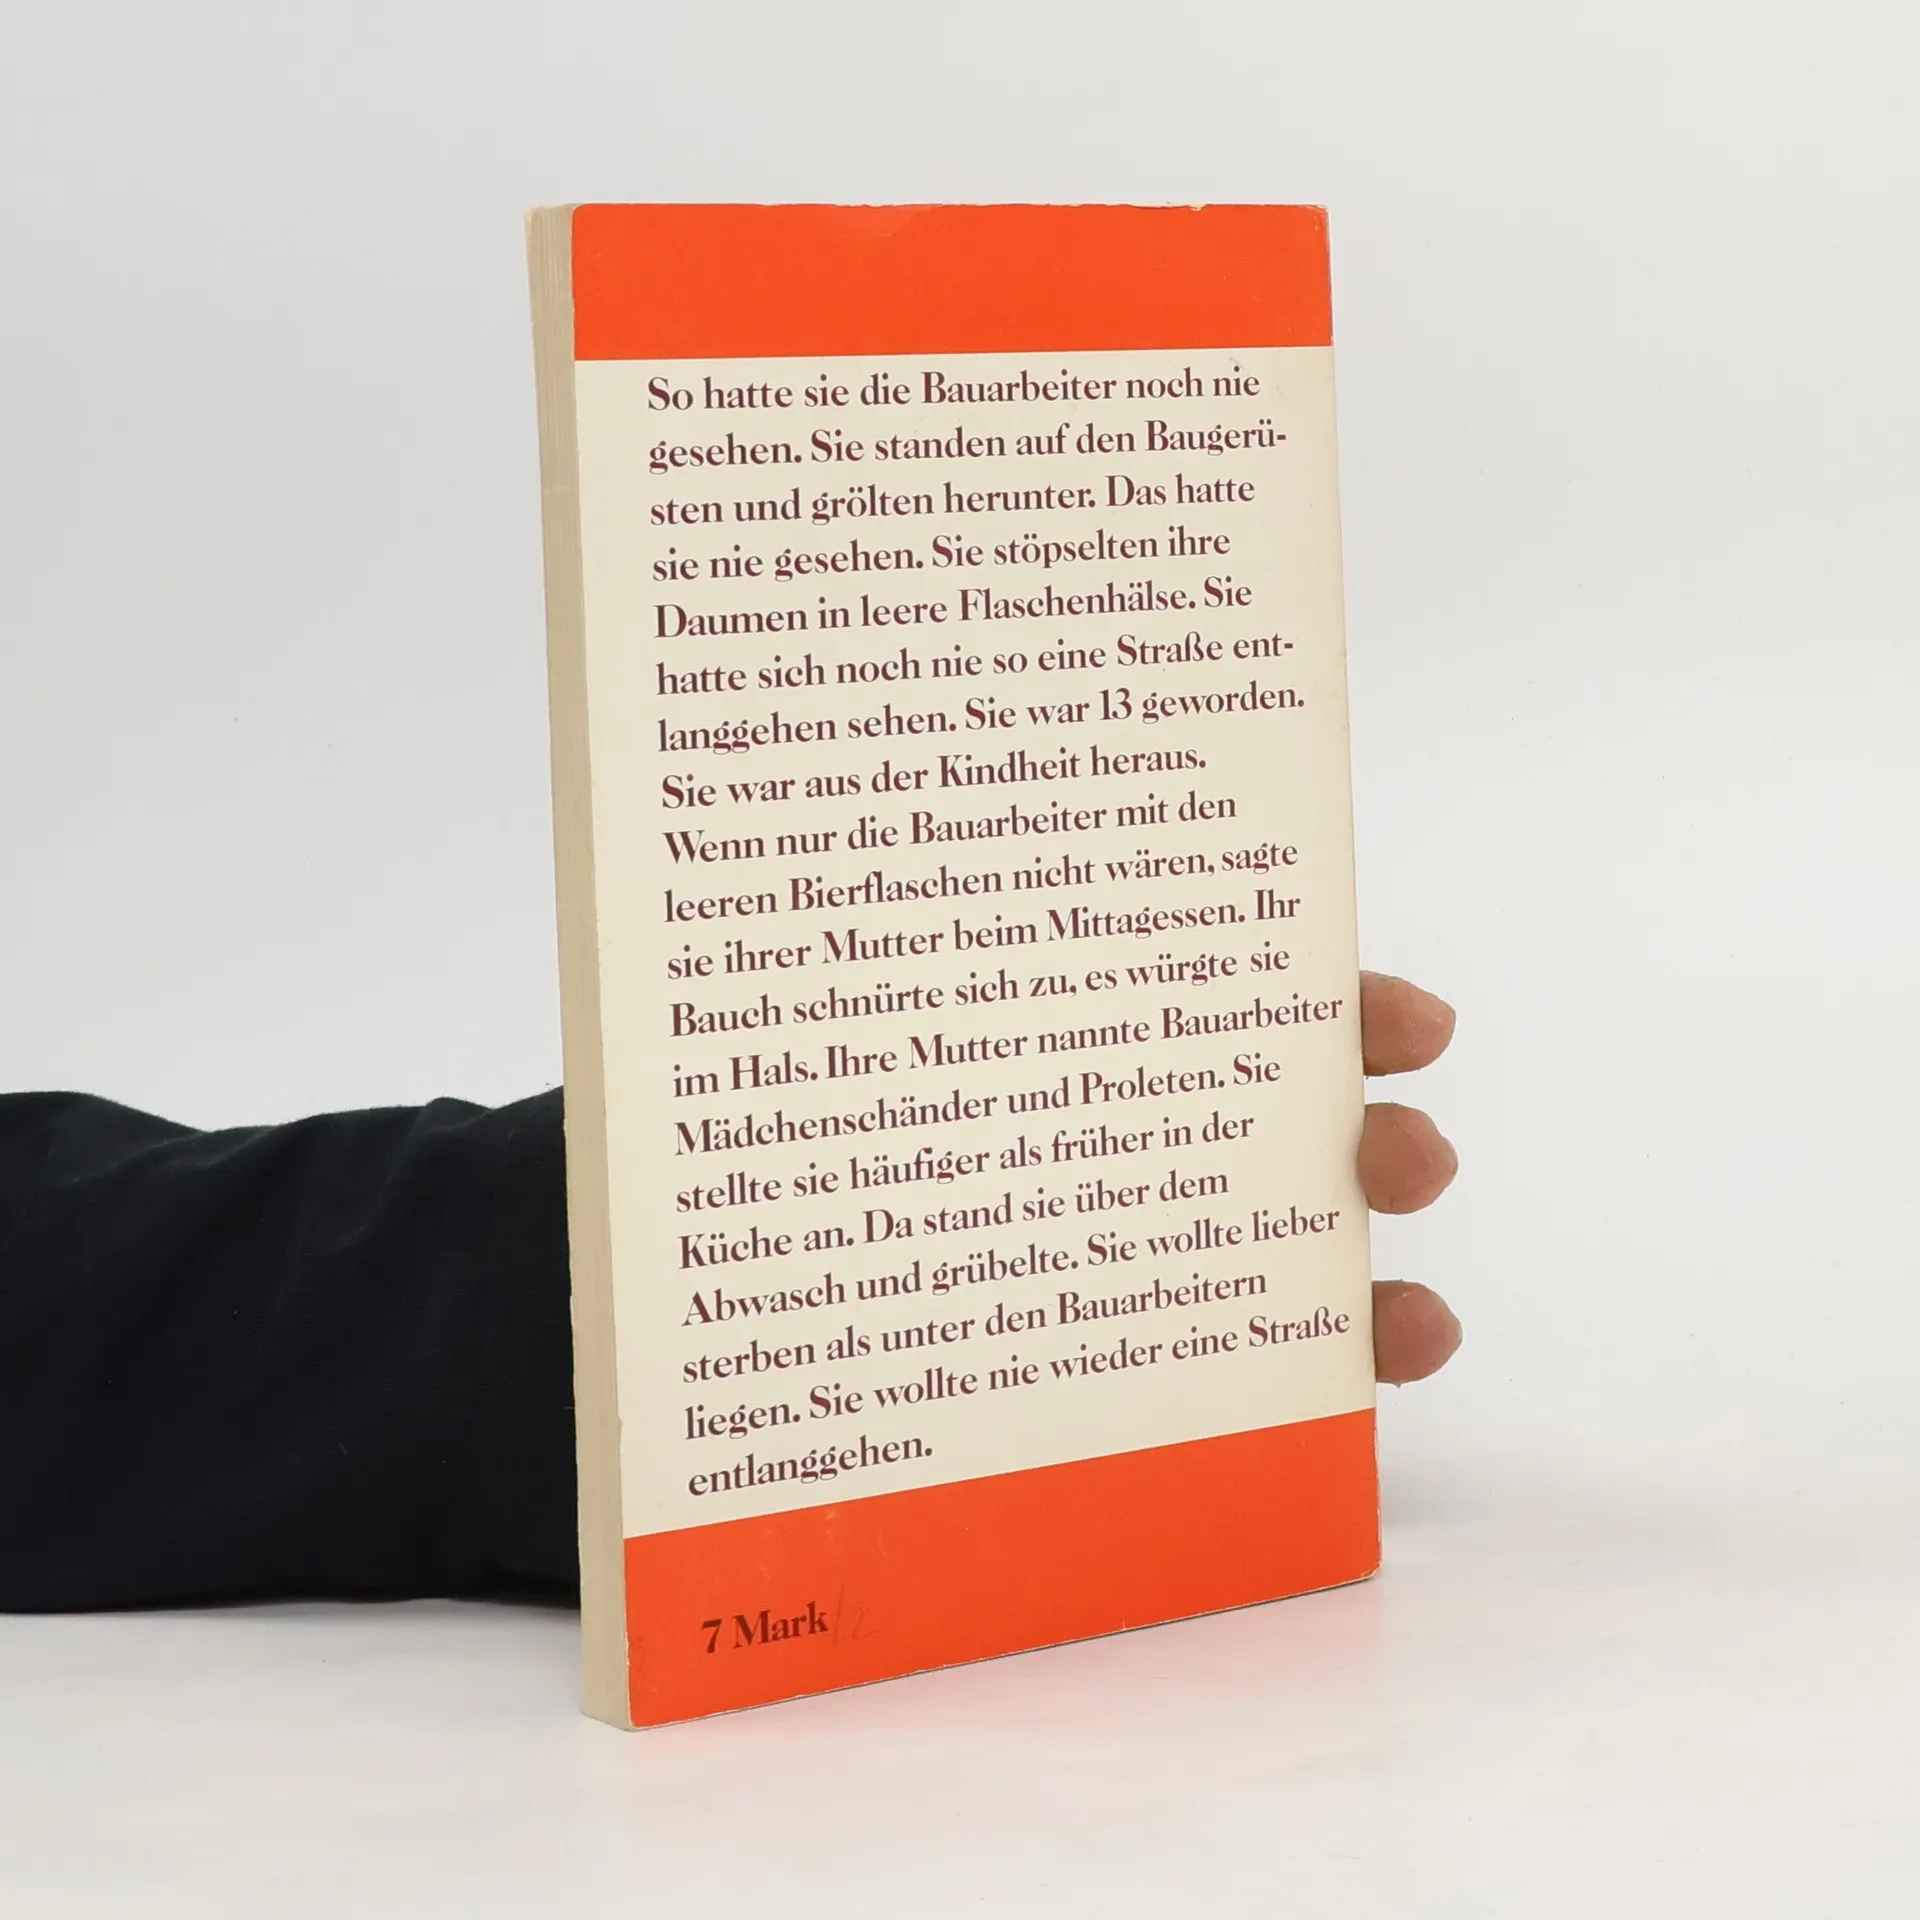 So hatte sie die Bauarbeiter noch nie
gesehen. Sie standen auf den Baugerü-
sten und grölten herunter. Das hatte
sie nie gesehen. Sie stöpselten ihre
Daumen in leere Flaschenhälse. Sie
hatte sich noch nie so eine Straße ent-
langgehen sehen. Sie war 13 geworden.
Sie war aus der Kindheit heraus.
Wenn nur die Bauarbeiter mit den
leeren Bierflaschen nicht wären, sagte
sie ihrer Mutter beim Mittagessen. Ihr
Bauch schnürte sich zu, es würgte sie
im Hals. Ihre Mutter nannte Bauarbeiter
Mädchenschänder und Proleten. Sie
stellte sie häufiger als früher in der
Küche an. Da stand sie über dem
Abwasch und grübelte. Sie wollte lieber
sterben als unter den Bauarbeitern
liegen. Sie wollte nie wieder eine Straße
entlanggehen.
7 Mark